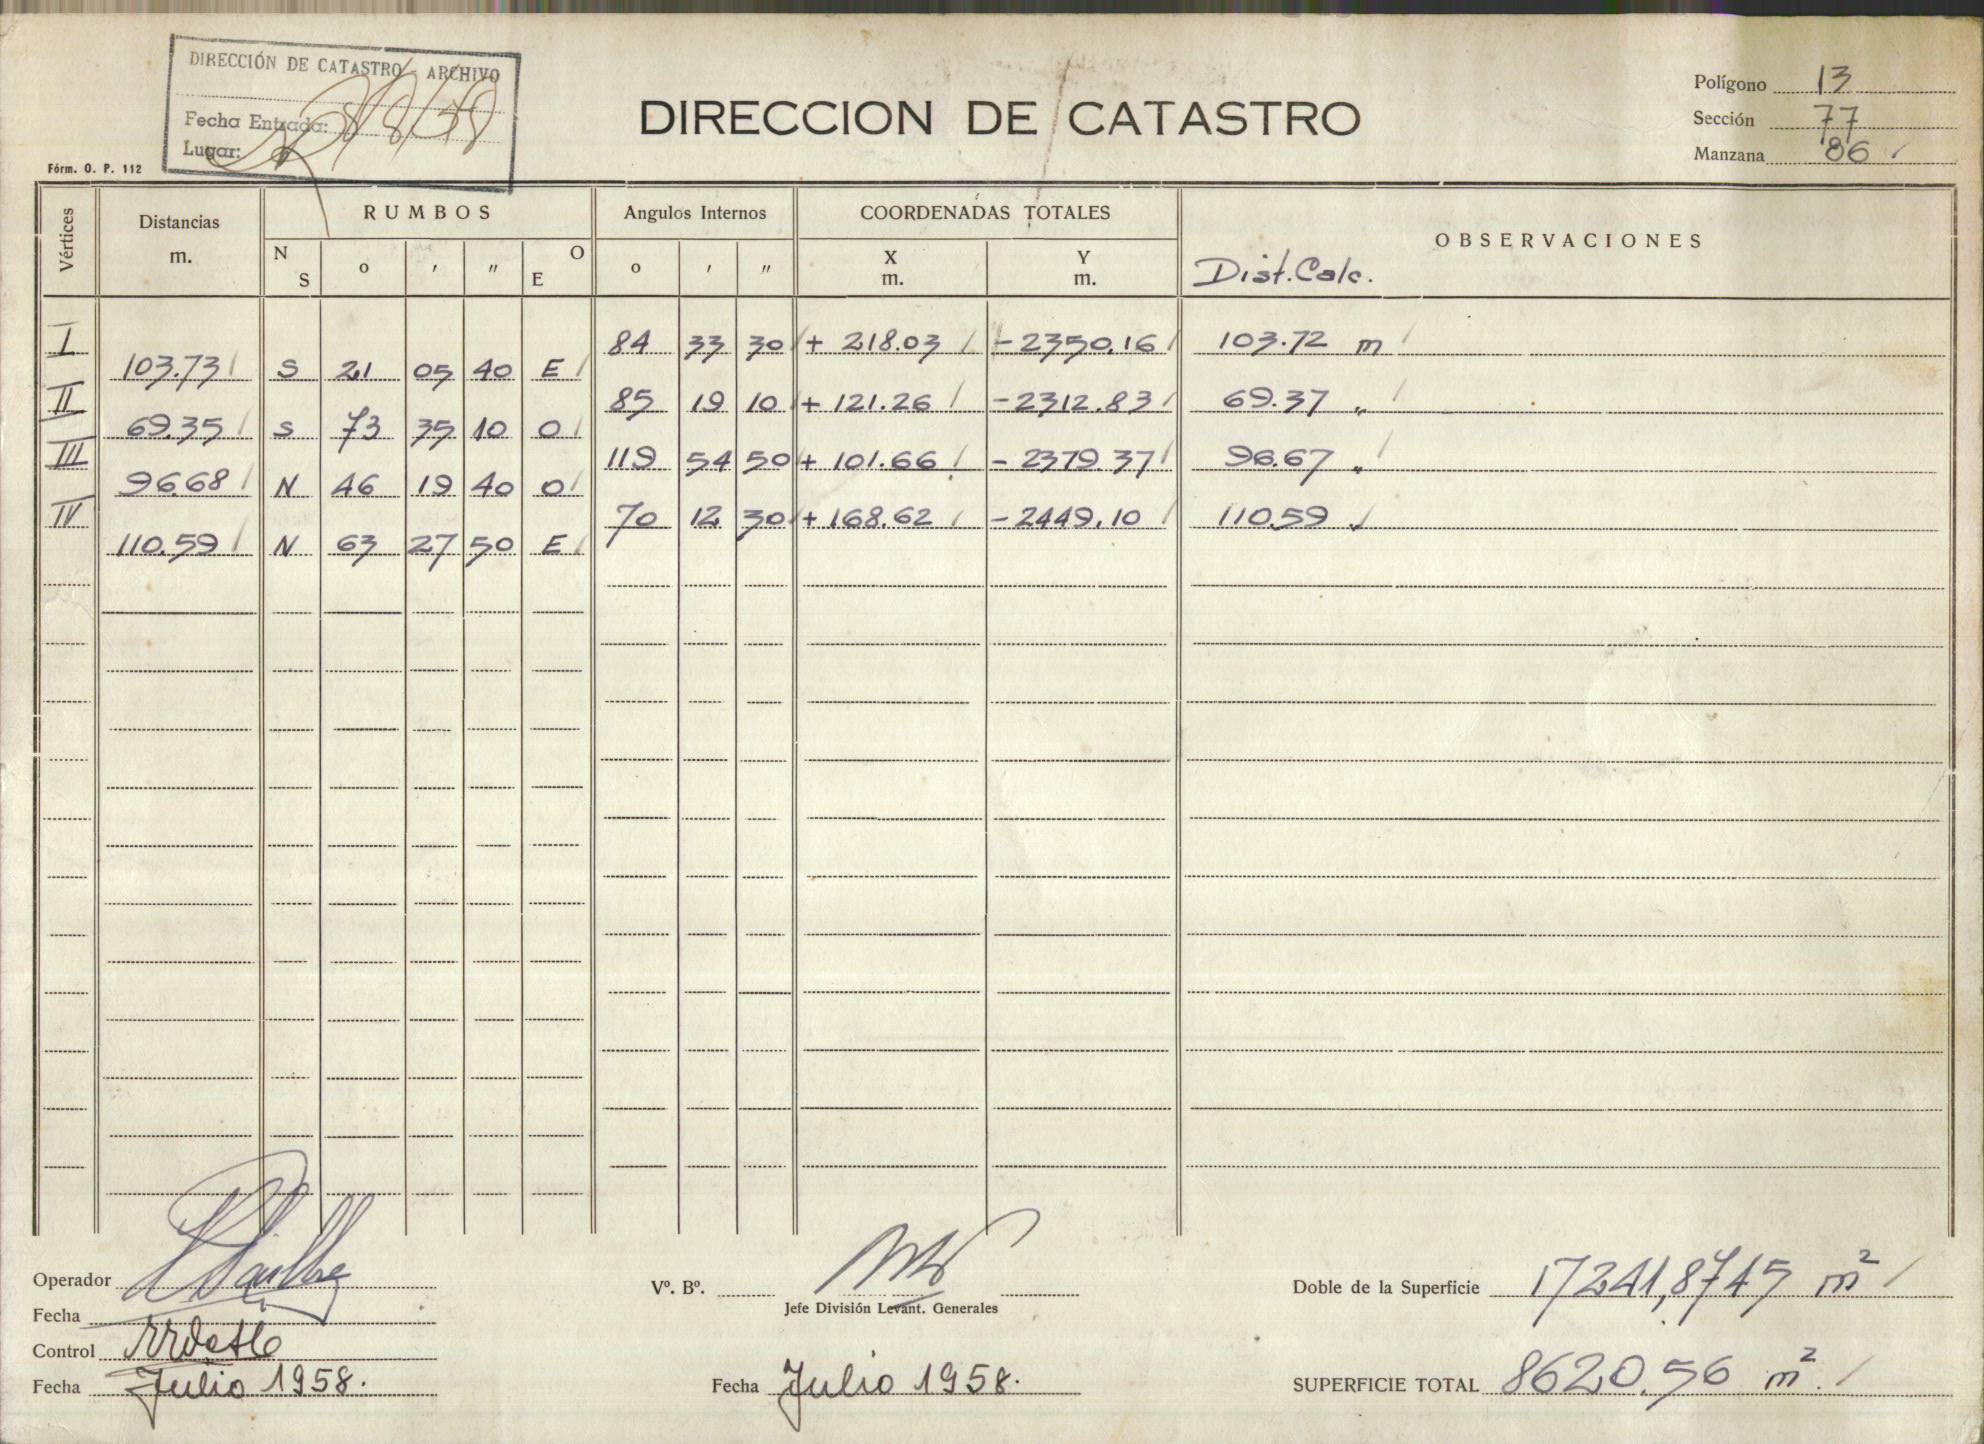 DIRECCIÓN DE CATASTRO - ARCHIVO
Fecha Entrada: 8/8/58
Lugar:
Fórm. O. P. 112
DIRECCION DE CATASTRO
Polígono 13
Sección 77
Manzana 86
Vértices Distancias m. RUMBOS Angulos Internos COORDENADAS TOTALES OBSERVACIONES
N S o ' " O E o ' " X m. Y m. Dist. Calc.
I 84 33 30 + 218.03 - 2350.16 103.72 m
103.73 S 21 05 40 E
II 85 19 10 + 121.26 - 2312.83 69.37 "
69.35 S 73 35 10 O
III 119 54 50 + 101.66 - 2379.37 96.67 "
96.68 N 46 19 40 O
IV 70 12 30 + 168.62 - 2449.10 110.59 "
110.59 N 63 27 50 E
Operador
Fecha
Control
Fecha Julio 1958.
Vº. Bº.
Jefe División Levant. Generales
Fecha Julio 1958.
Doble de la Superficie 17241,8745 m²
SUPERFICIE TOTAL 8620.56 m².